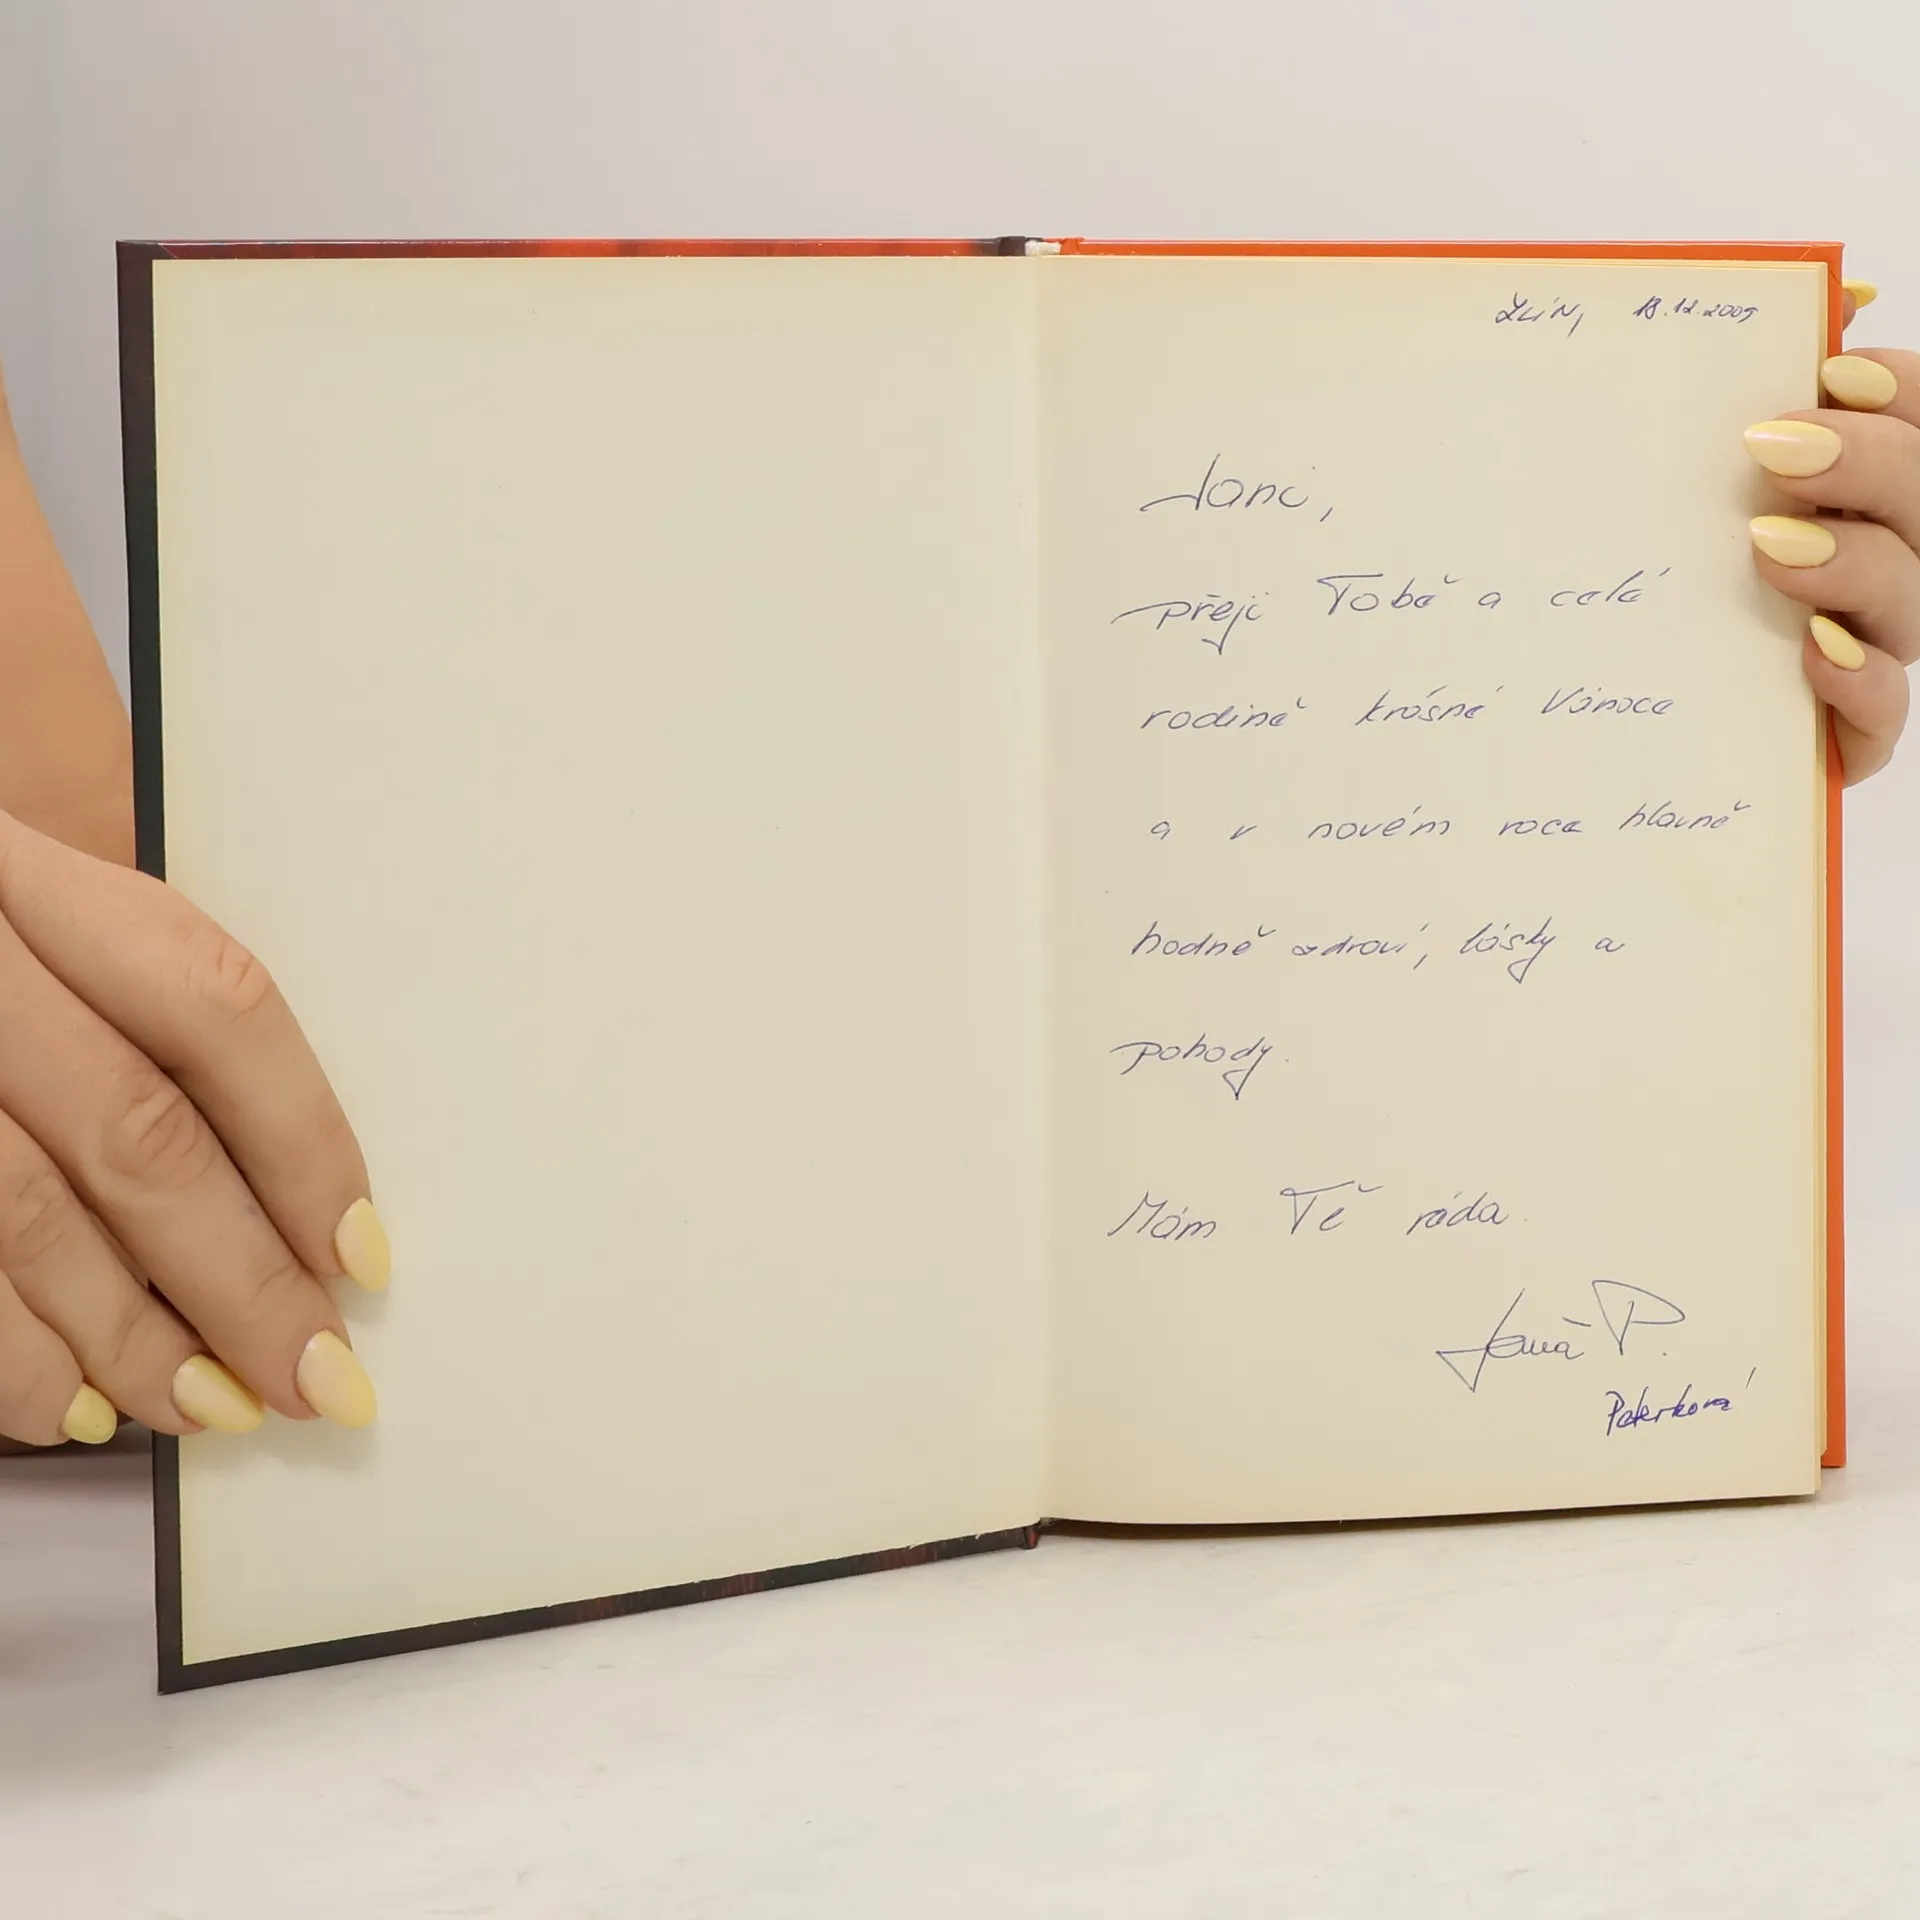 ZLÍN, 18.12.2009
Jani,
přeji Tobě a celé
rodině krásné Vánoce
a v novém roce hlavně
hodně zdraví, lásky a
pohody.
Mám Tě ráda.
Jana P.
Peterková